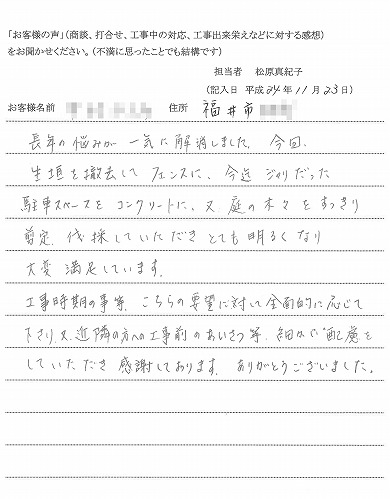 「お客様の声」（商談、打合せ、工事中の対応、工事出来栄えなどに対する感想）
をお聞かせください。（不満に思ったことでも結構です）
担当者　松原真紀子
（記入日 平成 24 年 11 月 23 日）
お客様名前　住所　福井市
長年の悩みが 一気に解消しました。今回、
生垣を撤去して フェンスに、今迄 ジャリだった
駐車スペースを コンクリートに、又 庭の木々をすっきり
剪定、伐採していただき とても 明るくなり
大変 満足しています。
工事時期の事等、こちらの要望に対して全面的に応じて
下さり、又、近隣の方への工事前のあいさつ等、細かなご配慮を
していただき 感謝しております。ありがとうございました。